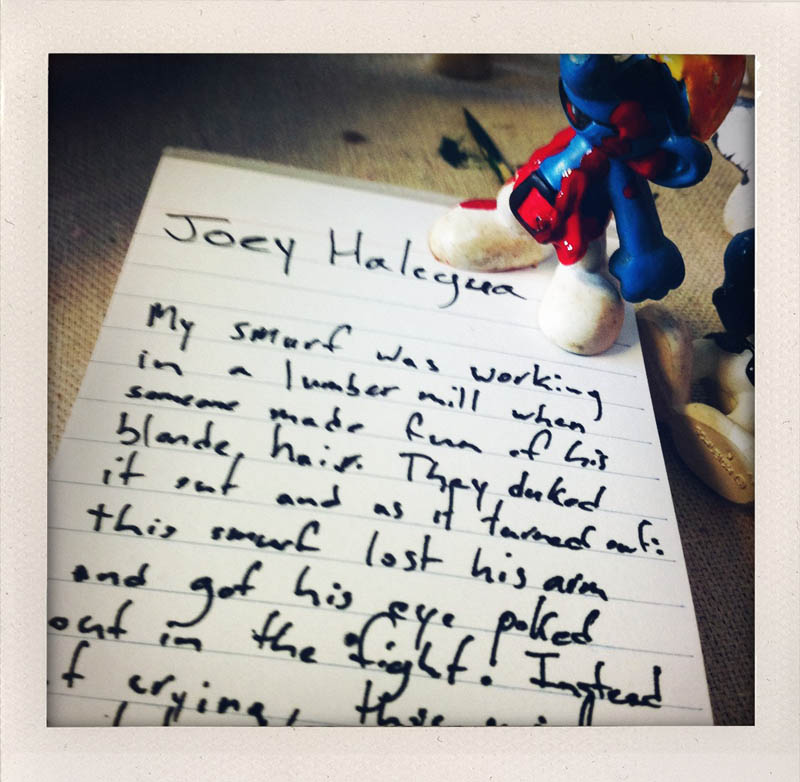 Joey Halegua
My smurf was working
in a lumber mill when
someone made fun of his
blonde hair. They duked
it out and as it turned out:
this smurf lost his arm
and got his eye poked
out in the fight! Instead
of crying, this